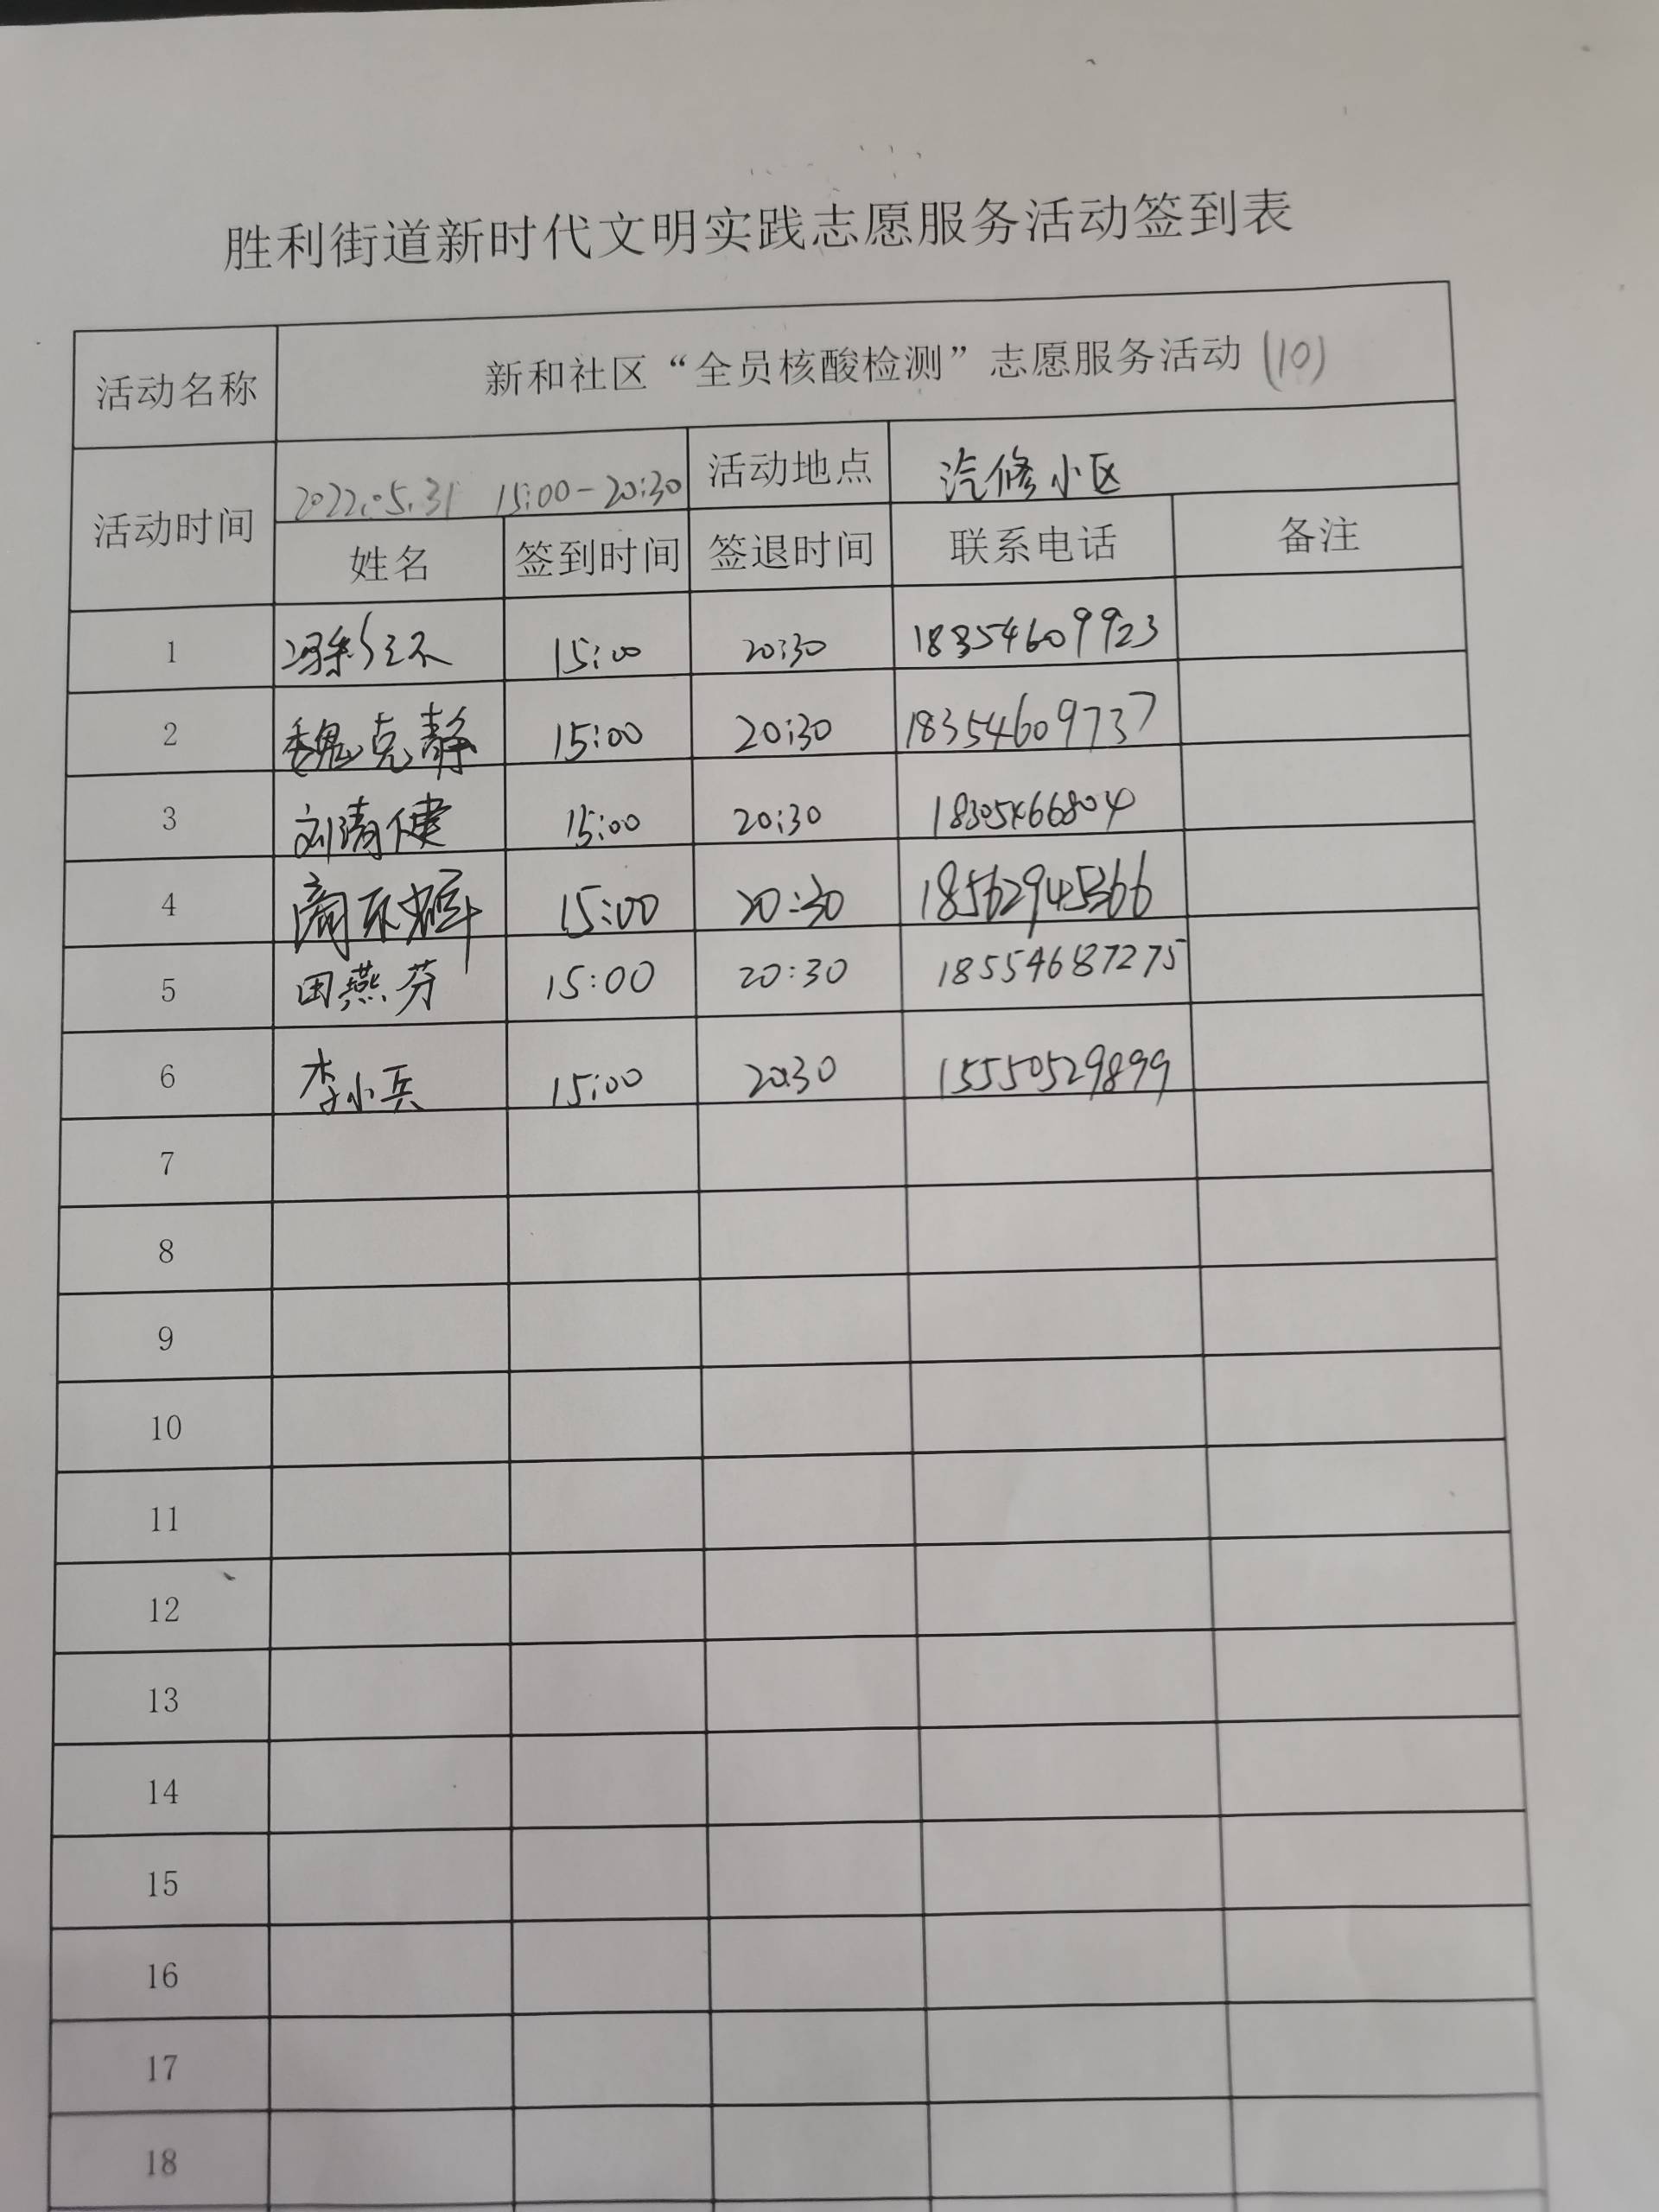 胜利街道新时代文明实践志愿服务活动签到表
活动名称 新和社区“全员核酸检测”志愿服务活动(10)
活动时间 2022.5.31 15:00-20:30 活动地点 汽修小区
姓名 签到时间 签退时间 联系电话 备注
1 冯彩环 15:00 20:30 18354609923
2 魏克静 15:00 20:30 18354609737
3 刘清健 15:00 20:30 18305466804
4 15:00 20:30 18562945366
5 田燕芬 15:00 20:30 18554687275
6 李小兵 15:00 20:30 15550529899
7
8
9
10
11
12
13
14
15
16
17
18